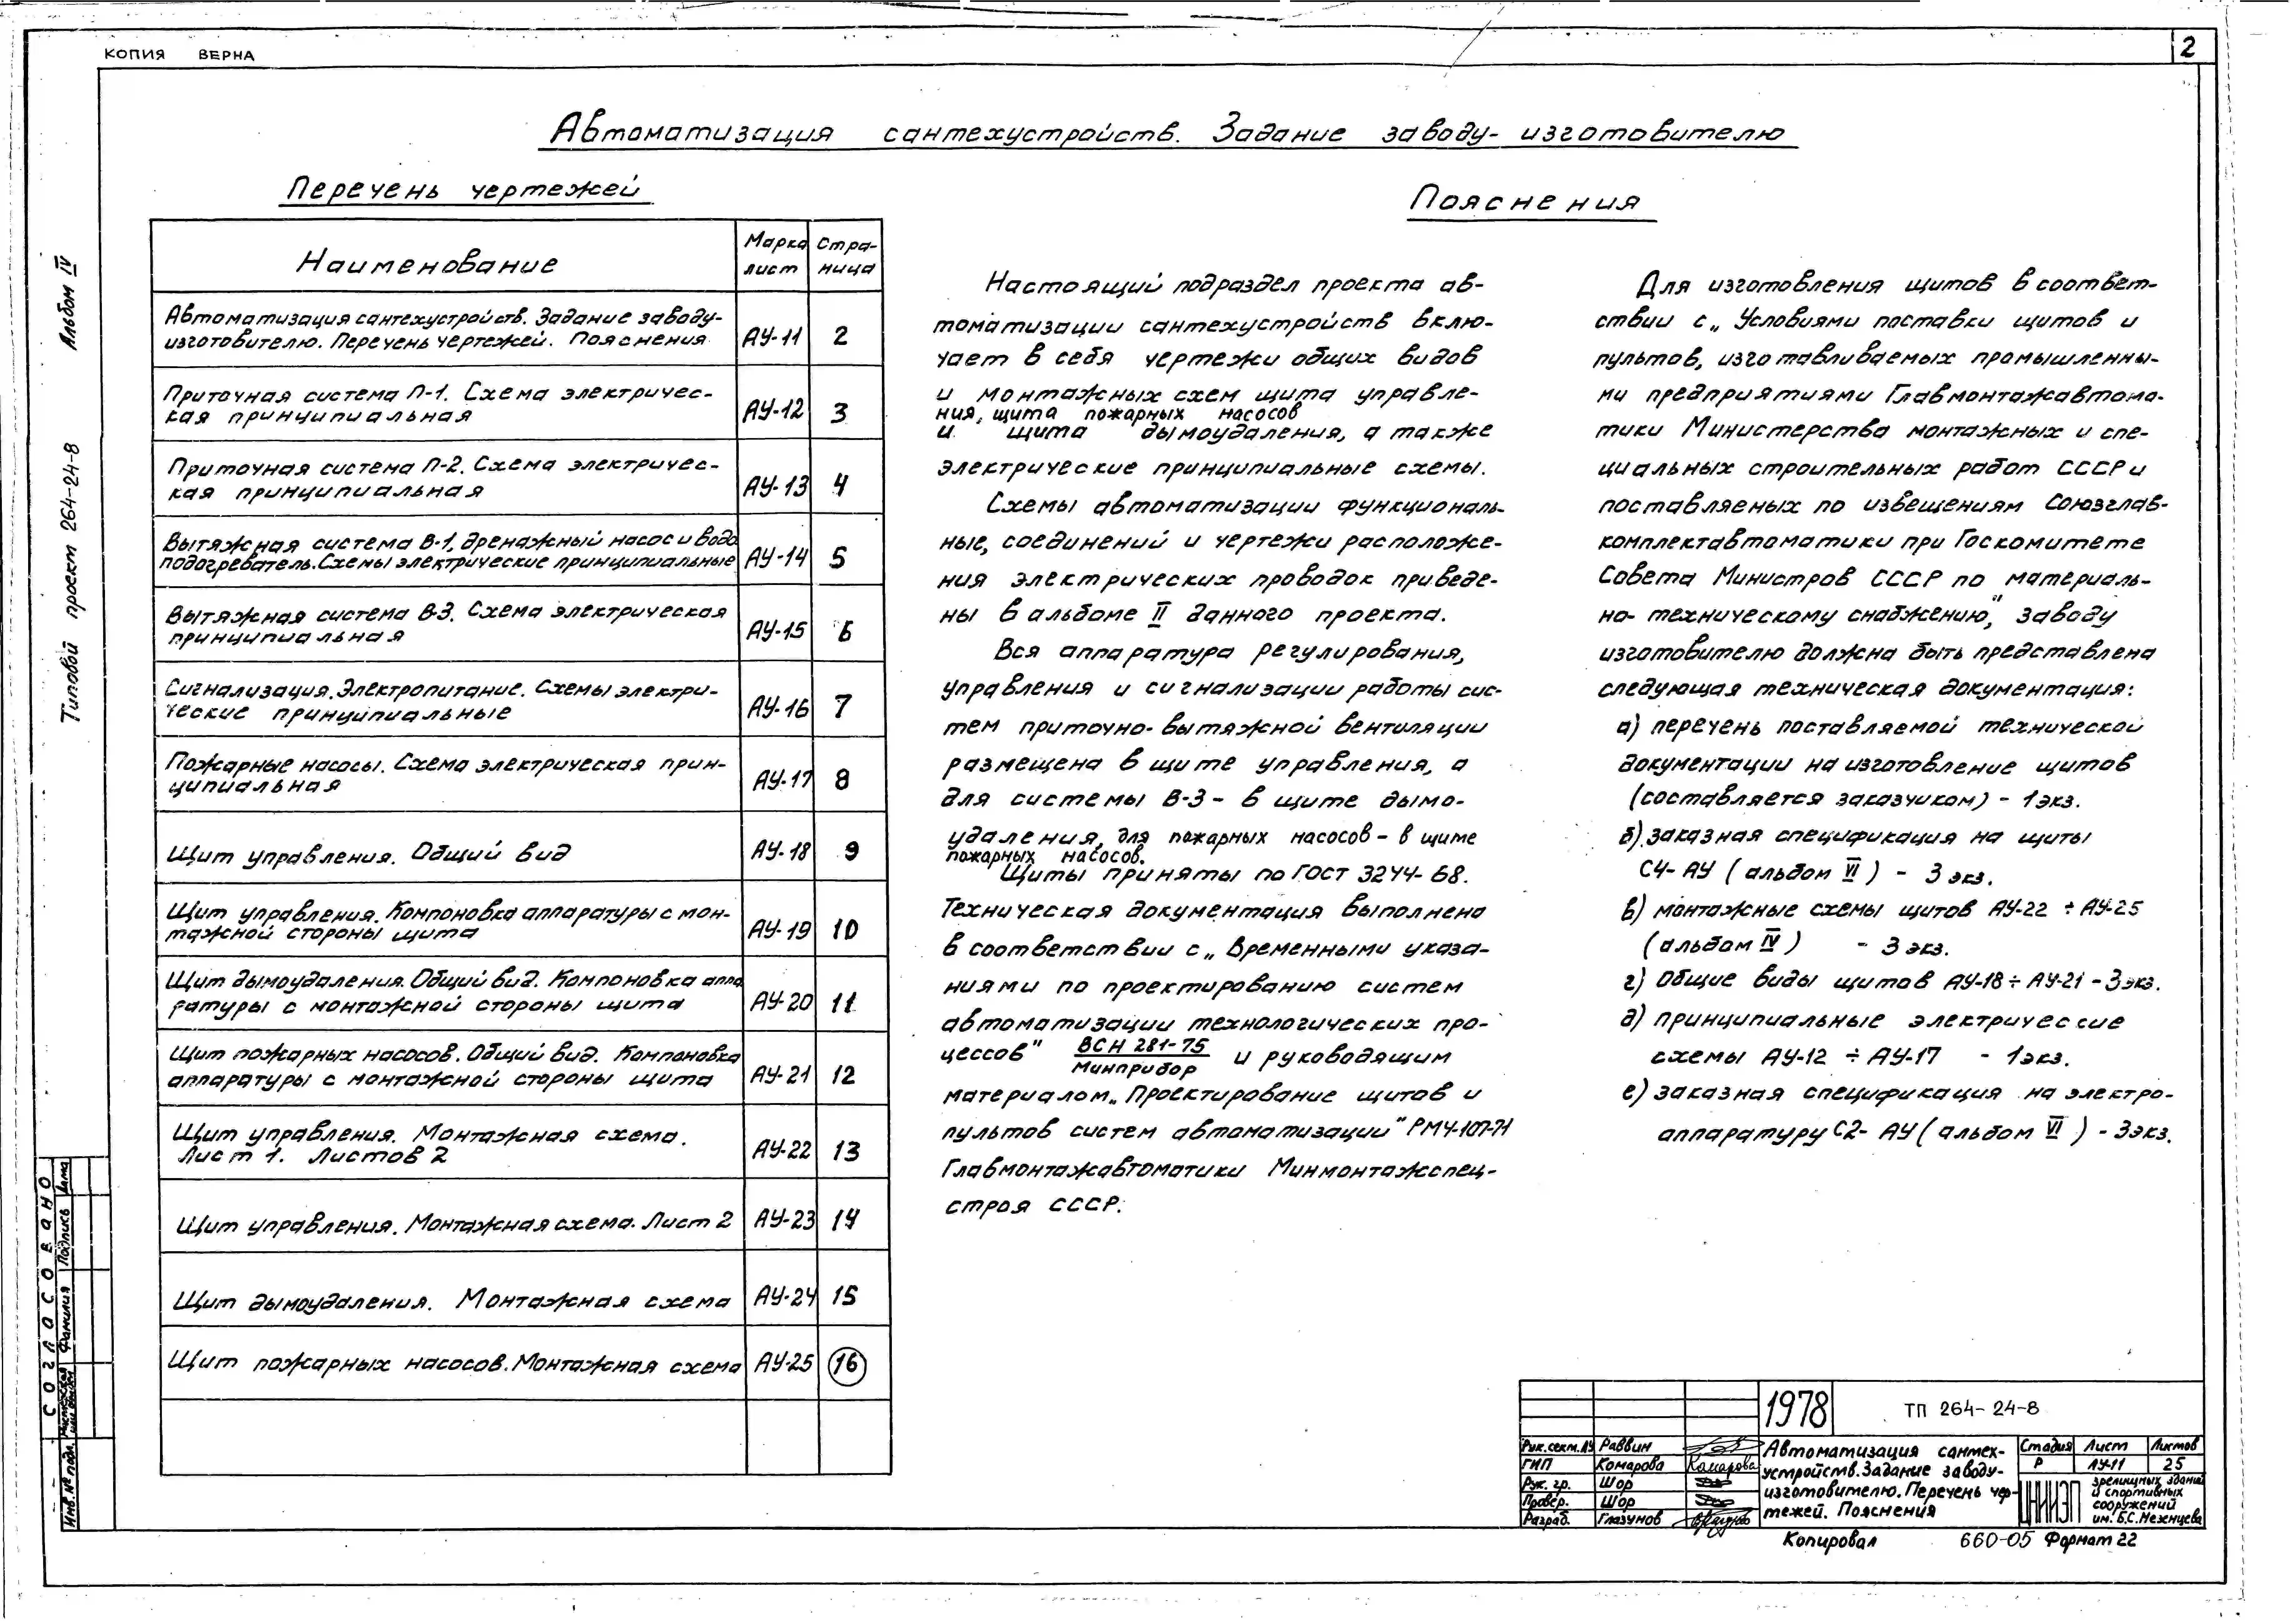 КОПИЯ ВЕРНА
2
Автоматизация сантехустройств. Задание заводу-изготовителю
Альбом IV
Типовой проект 264-24-8
Перечень чертежей
Наименование
Марка лист
Стра-
ница
Автоматизация сантехустройств. Задание заводу-
изготовителю. Перечень чертежей. Пояснения
АУ-11 2
Приточная система П-1. Схема электричес-
кая принципиальная
АУ-12 3
Приточная система П-2. Схема электричес-
кая принципиальная
АУ-13 4
Вытяжная система В-1, дренажный насос и водо
подогреватель. Схемы электрические принципиальные
АУ-14 5
Вытяжная система В-3. Схема электрическая
принципиальная
АУ-15 6
Сигнализация. Электропитание. Схемы электри-
ческие принципиальные
АУ-16 7
Пожарные насосы. Схема электрическая прин-
ципиальная
АУ-17 8
Щит управления. Общий вид АУ-18 9
Щит управления. Компоновка аппаратуры с мон-
тажной стороны щита
АУ-19 10
Щит дымоудаления. Общий вид. Компоновка аппа
ратуры с монтажной стороны щита
АУ-20 11
Щит пожарных насосов. Общий вид. Компоновка
аппаратуры с монтажной стороны щита
АУ-21 12
Щит управления. Монтажная схема.
Лист 1. Листов 2
АУ-22 13
Щит управления. Монтажная схема. Лист 2 АУ-23 14
Щит дымоудаления. Монтажная схема АУ-24 15
Щит пожарных насосов. Монтажная схема АУ-25 16
Пояснения
Настоящий подраздел проекта ав-
томатизации сантехустройств вклю-
чает в себя чертежи общих видов
и монтажных схем щита управле-
ния, щита пожарных насосов
и щита дымоудаления, а также
электрические принципиальные схемы.
Схемы автоматизации функциональ-
ные, соединений и чертежи расположе-
ния электрических проводок приведе-
ны в альбоме II данного проекта.
Вся аппаратура регулирования,
управления и сигнализации работы сис-
тем приточно-вытяжной вентиляции
размещена в щите управления, а
для системы В-3 - в щите дымо-
удаления, для пожарных насосов - в щите
пожарных насосов.
Щиты приняты по ГОСТ 3244-68.
Техническая документация выполнена
в соответствии с „Временными указа-
ниями по проектированию систем
автоматизации технологических про-
цессов" ВСН 281-75 и руководящим
Минприбор
материалом „Проектирование щитов и
пультов систем автоматизации" РМ4-107-71
Главмонтажавтоматики Минмонтажспец-
строя СССР.
Для изготовления щитов в соответ-
ствии с „Условиями поставки щитов и
пультов, изготавливаемых промышленны-
ми предприятиями Главмонтажавтома-
тики Министерства монтажных и спе-
циальных строительных работ СССР и
поставляемых по извещениям Союзглав-
комплектавтоматики при Госкомитете
Совета Министров СССР по материаль-
но-техническому снабжению", заводу
изготовителю должна быть представлена
следующая техническая документация:
а) перечень поставляемой технической
документации на изготовление щитов
(составляется заказчиком) - 1 экз.
б) заказная спецификация на щиты
С4-АУ (альбом VI) - 3 экз.
в) монтажные схемы щитов АУ-22 ÷ АУ-25
(альбом IV) - 3 экз.
г) общие виды щитов АУ-18 ÷ АУ-21 - 3 экз.
д) принципиальные электрические
схемы АУ-12 ÷ АУ-17 - 1 экз.
е) заказная спецификация на электро-
аппаратуру С2-АУ (альбом VI) - 3 экз.
СОГЛАСОВАНО
Фамилия Подпись Дата
Инв. № подл.
1978
ТП 264-24-8
Рук. сект. АУ Раввин
ГИП Комарова Комарова
Рук. гр. Шор
Провер. Шор
Разраб. Глазунов
Автоматизация сантех-
устройств. Задание заводу-
изготовителю. Перечень чер-
тежей. Пояснения
Стадия Лист Листов
Р АУ-11 25
ЦНИИЭП
зрелищных зданий
и спортивных
сооружений
им. Б.С. Мезенцева
Копировал 660-05 Формат 22